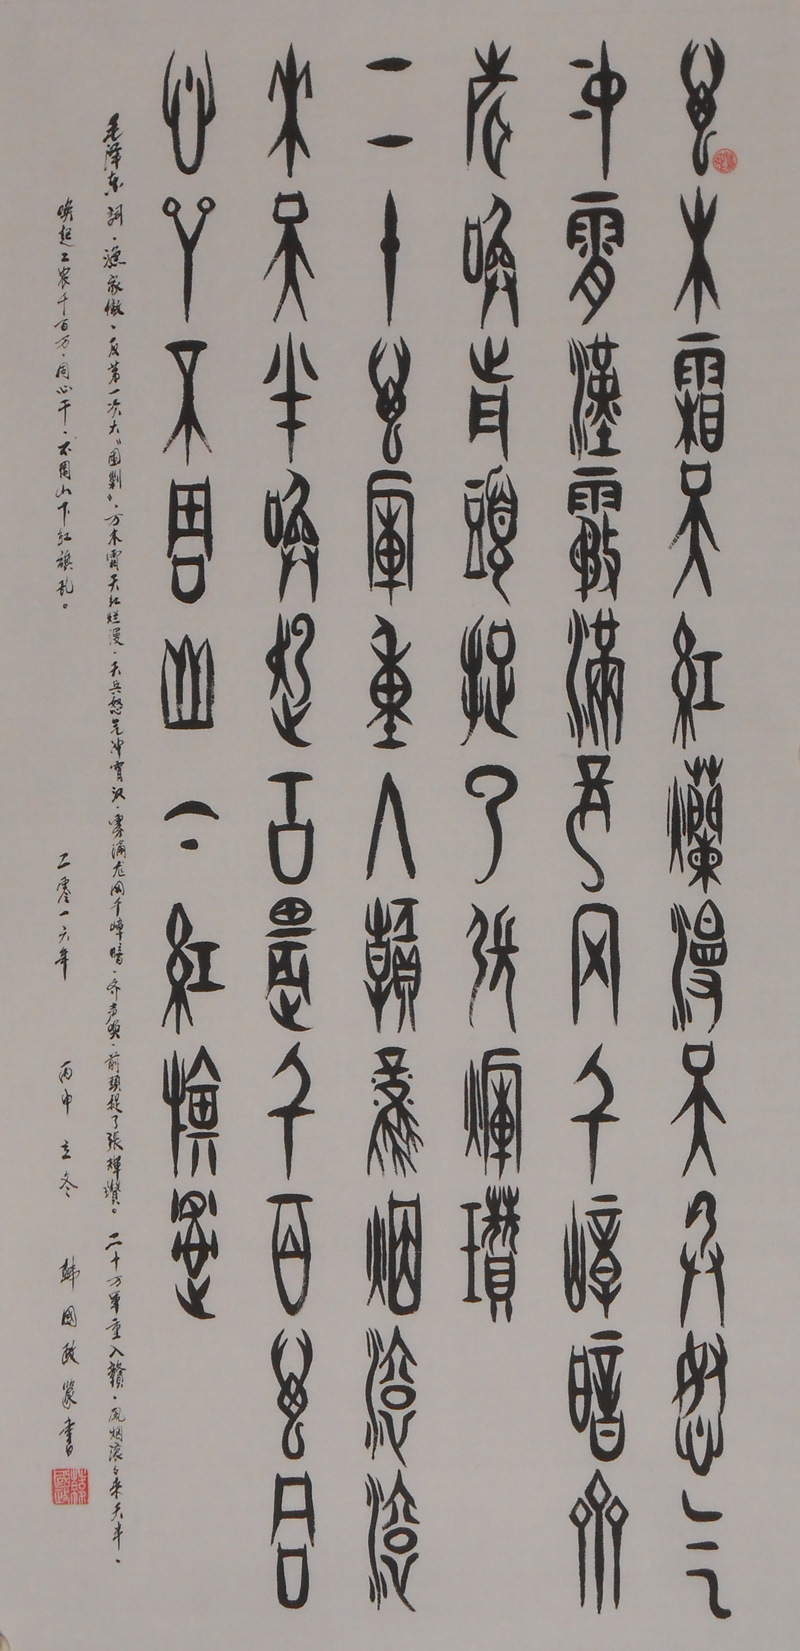 萬木霜天紅爛漫天兵怒气
冲霄漢霧滿龙冈千嶂暗齊
声唤前頭捉了张煇瓚
二十萬軍重入贛風烟滚滚
来天半唤起工農千百萬同
心干不周山下紅旗亂
毛泽东詞·渔家傲·反第一次大"围剿"·万木霜天红烂漫·天兵怒气冲霄汉·雾满龙冈千嶂暗·齐声唤·前頭捉了張輝瓚。二十万軍重入赣·风烟滚滚来天半·
唤起工农千百万·同心干·不周山下红旗乱。 二零一六年 丙申立冬 韩國政篆書